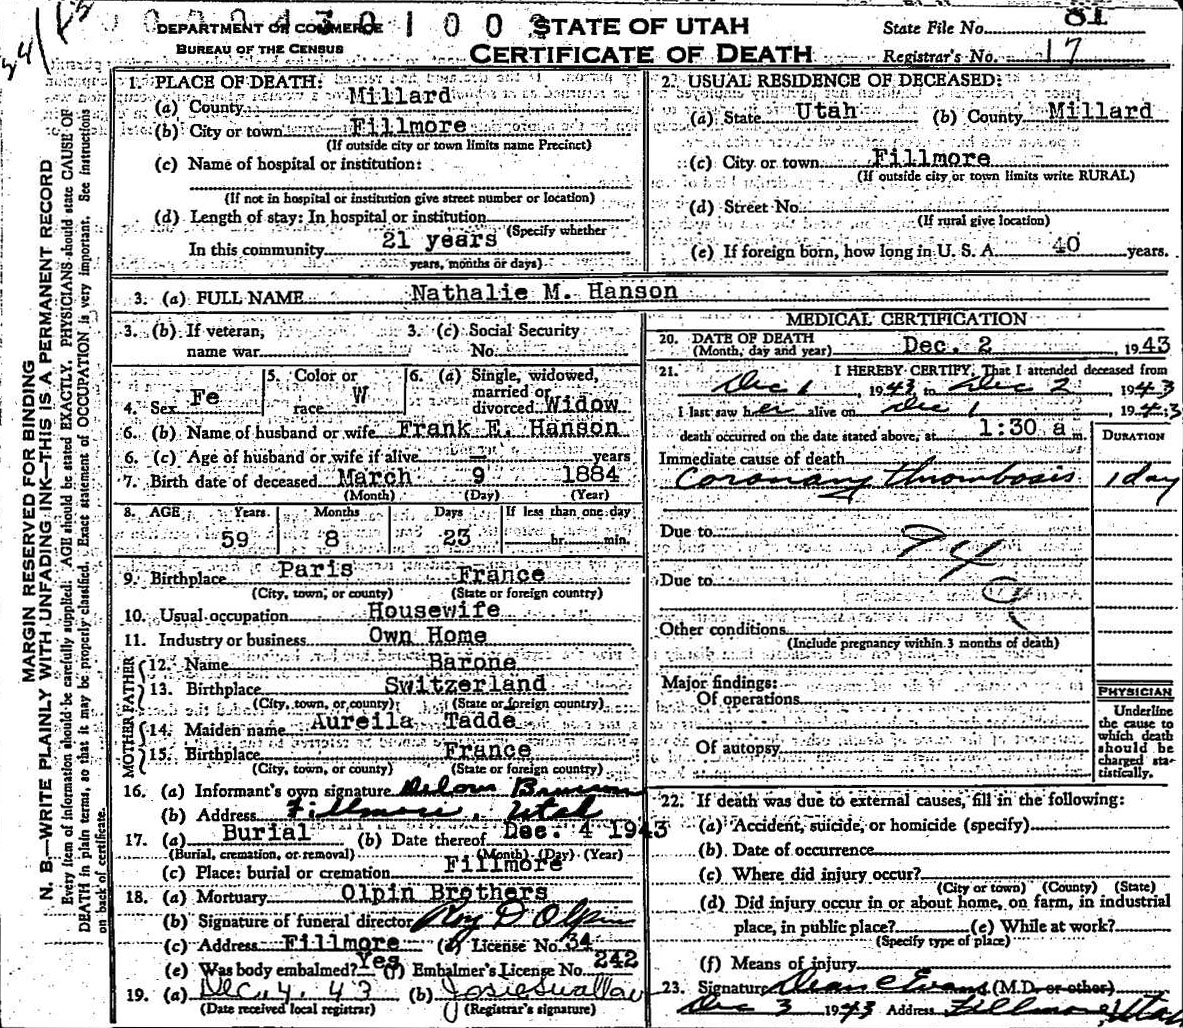 0 0 0 4 3 0 1 0 0
DEPARTMENT OF COMMERCE
BUREAU OF THE CENSUS
STATE OF UTAH
CERTIFICATE OF DEATH
State File No. 81
Registrar's No. 17
MARGIN RESERVED FOR BINDING
N. B.—WRITE PLAINLY WITH UNFADING INK—THIS IS A PERMANENT RECORD
Every item of information should be carefully supplied. AGE should be stated EXACTLY. PHYSICIANS should state CAUSE OF
DEATH in plain terms, so that it may be properly classified. Exact statement of OCCUPATION is very important. See instructions
on back of certificate.
1. PLACE OF DEATH:
(a) County Millard
(b) City or town Fillmore
(If outside city or town limits name Precinct)
(c) Name of hospital or institution:
(If not in hospital or institution give street number or location)
(d) Length of stay: In hospital or institution
(Specify whether
In this community 21 years
years, months or days)
2. USUAL RESIDENCE OF DECEASED:
(a) State Utah (b) County Millard
(c) City or town Fillmore
(If outside city or town limits write RURAL)
(d) Street No.
(If rural give location)
(e) If foreign born, how long in U. S. A. 40 years.
3. (a) FULL NAME Nathalie M. Hanson
3. (b) If veteran, name war
3. (c) Social Security No.
4. Sex Fe
5. Color or race W
6. (a) Single, widowed, married or divorced Widow
6. (b) Name of husband or wife Frank E. Hanson
6. (c) Age of husband or wife if alive — years
7. Birth date of deceased March 9 1884
(Month) (Day) (Year)
8. AGE Years Months Days If less than one day
59 8 23 hr. min.
9. Birthplace Paris France
(City, town, or county) (State or foreign country)
10. Usual occupation Housewife
11. Industry or business Own Home
FATHER
12. Name Barone
13. Birthplace Switzerland
(City, town, or county) (State or foreign country)
MOTHER
14. Maiden name Aureila Tadde
15. Birthplace France
(City, town, or county) (State or foreign country)
16. (a) Informant's own signature
(b) Address Fillmore, Utah
17. (a) Burial (b) Date thereof Dec. 4 1943
(Burial, cremation, or removal) (Month) (Day) (Year)
(c) Place: burial or cremation Fillmore
18. (a) Mortuary Olpin Brothers
(b) Signature of funeral director Roy D Olpin
(c) Address Fillmore (d) License No. 34
(e) Was body embalmed? Yes (f) Embalmer's License No. 242
19. (a) Dec. 4. 43 (b) Josie Swallow
(Date received local registrar) (Registrar's signature)
MEDICAL CERTIFICATION
20. DATE OF DEATH
(Month, day and year) Dec. 2, 1943
21. I HEREBY CERTIFY, That I attended deceased from
Dec 1, 1943 to Dec 2 1943
I last saw her alive on Dec 1, 1943
death occurred on the date stated above, at 1:30 a m.
DURATION
Immediate cause of death
Coronary thrombosis 1 day
Due to
94
Due to
Other conditions
(Include pregnancy within 3 months of death)
Major findings:
Of operations
Of autopsy
PHYSICIAN
Underline
the cause to
which death
should be
charged sta-
tistically.
22. If death was due to external causes, fill in the following:
(a) Accident, suicide, or homicide (specify)
(b) Date of occurrence
(c) Where did injury occur?
(City or town) (County) (State)
(d) Did injury occur in or about home, on farm, in industrial
place, in public place? (e) While at work?
(Specify type of place)
(f) Means of injury
23. Signature Dean C Evans (M.D. or other)
Dec 3 1943 Address Fillmore, Utah